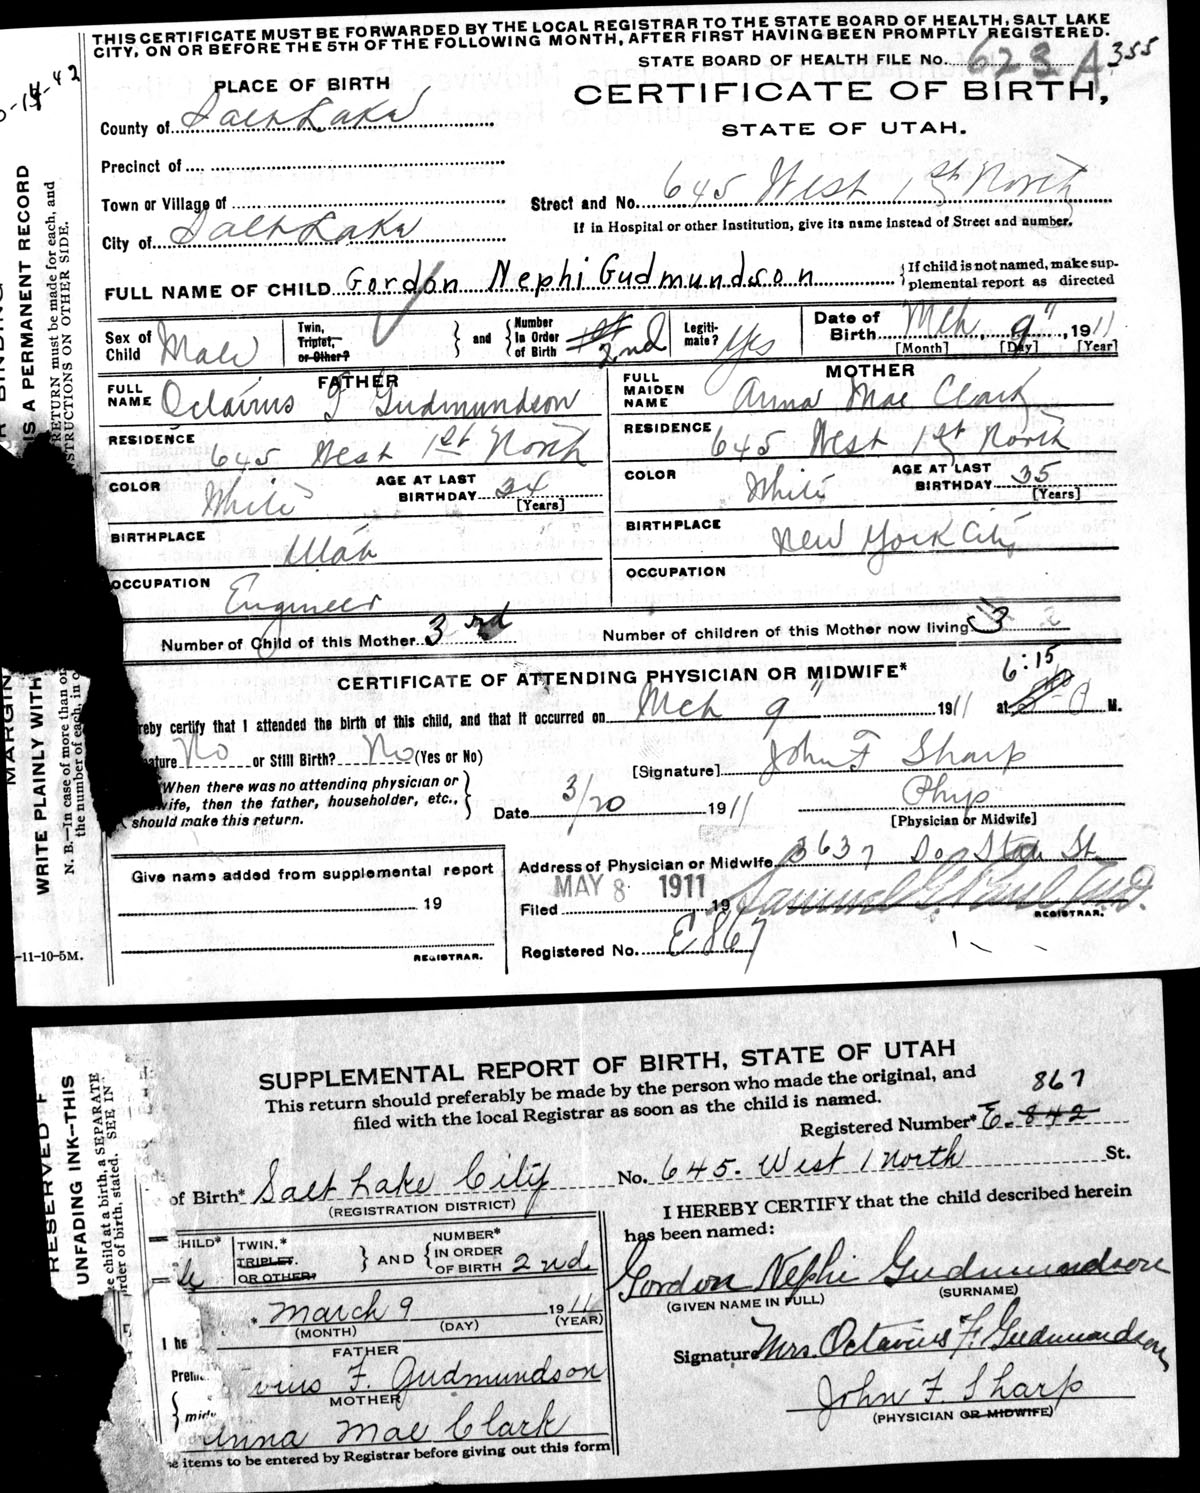 THIS CERTIFICATE MUST BE FORWARDED BY THE LOCAL REGISTRAR TO THE STATE BOARD OF HEALTH, SALT LAKE
CITY, ON OR BEFORE THE 5TH OF THE FOLLOWING MONTH, AFTER FIRST HAVING BEEN PROMPTLY REGISTERED.
STATE BOARD OF HEALTH FILE No. 623 A 355
PLACE OF BIRTH
CERTIFICATE OF BIRTH,
STATE OF UTAH.
County of Salt Lake
Precinct of
Town or Village of
Street and No. 645 West 1st North
City of Salt Lake
If in Hospital or other Institution, give its name instead of Street and number.
FULL NAME OF CHILD Gordon Nephi Gudmundson
If child is not named, make sup-
plemental report as directed
Sex of Child Male
Twin, Triplet, or Other?
and
Number in Order of Birth 1st 2nd
Legiti-mate? Yes
Date of Birth Mch 9", 1911
[Month] [Day] [Year]
FATHER
FULL NAME Octavius F Gudmundson
RESIDENCE 645 West 1st North
COLOR White
AGE AT LAST BIRTHDAY 34
[Years]
BIRTHPLACE Utah
OCCUPATION Engineer
MOTHER
FULL MAIDEN NAME Anna Mae Clark
RESIDENCE 645 West 1st North
COLOR White
AGE AT LAST BIRTHDAY 35
[Years]
BIRTHPLACE New York City
OCCUPATION
Number of Child of this Mother 3rd
Number of children of this Mother now living 3
CERTIFICATE OF ATTENDING PHYSICIAN OR MIDWIFE*
6:15
reby certify that I attended the birth of this child, and that it occurred on Mch 9" 1911 at M.
ature No or Still Birth? No (Yes or No)
[Signature] John F Sharp
When there was no attending physician or
wife, then the father, householder, etc.,
should make this return.
Date 3/20 1911
Phys
[Physician or Midwife]
Give name added from supplemental report
19
REGISTRAR.
Address of Physician or Midwife 3637 So State St
MAY 8 1911
Filed 19
REGISTRAR.
Registered No. E867
-11-10-5M.
MARGIN
WRITE PLAINLY WITH
N. B.—In case of more than on
the number of each, in o
IS A PERMANENT RECORD
RETURN must be made for each, and
STRUCTIONS ON OTHER SIDE.
SUPPLEMENTAL REPORT OF BIRTH, STATE OF UTAH
This return should preferably be made by the person who made the original, and
filed with the local Registrar as soon as the child is named.
867
Registered Number* E. 842
of Birth* Salt Lake City No. 645. West 1 North St.
(REGISTRATION DISTRICT)
I HEREBY CERTIFY that the child described herein
has been named:
CHILD* le
TWIN,* TRIPLET. OR OTHER.
AND
NUMBER* IN ORDER OF BIRTH 2nd
Gordon Nephi Gudmundson
(GIVEN NAME IN FULL) (SURNAME)
* March 9 1911
(MONTH) (DAY) (YEAR)
I he
FATHER
vius F. Gudmundson
Signature Mrs. Octavius F. Gudmundson
MOTHER
Anna Mae Clark
John F. Sharp
(PHYSICIAN OR MIDWIFE)
e items to be entered by Registrar before giving out this form
RESERVED F
UNFADING INK—THIS
e child at a birth, a SEPARATE
rder of birth, stated. SEE IN